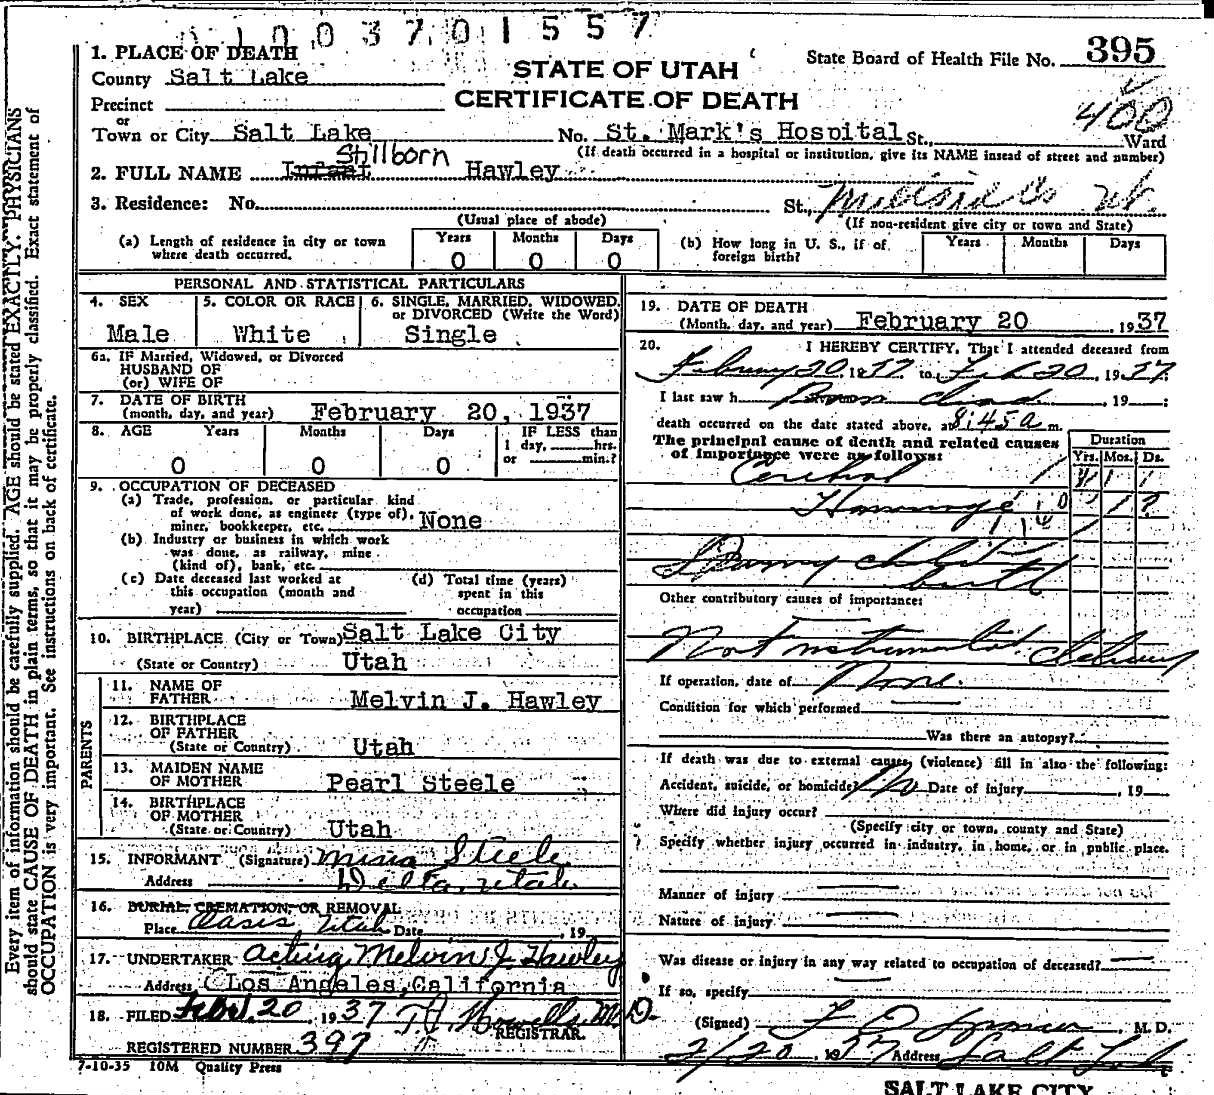 1 0 0 3 7 0 1 5 5 7
1. PLACE OF DEATH
County Salt Lake
Precinct
or
Town or City Salt Lake
STATE OF UTAH
CERTIFICATE OF DEATH
State Board of Health File No. 395
400
No. St. Mark's Hospital St., Ward
(If death occurred in a hospital or institution, give its NAME insead of street and number)
Stillborn
2. FULL NAME Infant Hawley
3. Residence: No. St., Millard Co Ut.
(Usual place of abode)
(If non-resident give city or town and State)
(a) Length of residence in city or town where death occurred.
Years Months Days
0 0 0
(b) How long in U. S., if of foreign birth?
Years Months Days
PERSONAL AND STATISTICAL PARTICULARS
4. SEX
Male
5. COLOR OR RACE
White
6. SINGLE, MARRIED, WIDOWED, or DIVORCED (Write the Word)
Single
6a. IF Married, Widowed, or Divorced
HUSBAND OF
(or) WIFE OF
7. DATE OF BIRTH
(month, day, and year) February 20, 1937
8. AGE Years Months Days
0 0 0
IF LESS than
1 day, hrs.
or min.?
9. OCCUPATION OF DECEASED
(a) Trade, profession, or particular kind
of work done, as engineer (type of),
miner, bookkeeper, etc. None
(b) Industry or business in which work
was done, as railway, mine
(kind of), bank, etc.
(c) Date deceased last worked at
this occupation (month and
year)
(d) Total time (years)
spent in this
occupation
10. BIRTHPLACE (City or Town) Salt Lake City
(State or Country) Utah
PARENTS
11. NAME OF
FATHER Melvin J. Hawley
12. BIRTHPLACE
OF FATHER
(State or Country) Utah
13. MAIDEN NAME
OF MOTHER Pearl Steele
14. BIRTHPLACE
OF MOTHER
(State or Country) Utah
15. INFORMANT (Signature) Mina Steele
Address Delta, Utah.
16. BURIAL, CREMATION, OR REMOVAL
Place Oasis Utah Date , 19
17. UNDERTAKER acting Melvin J. Hawley
Address Los Angeles, California
18. FILED Feb. 20 1937 T. J. Howells M.D.
REGISTRAR.
REGISTERED NUMBER 397
7-10-35 10M Quality Press
19. DATE OF DEATH
(Month, day, and year) February 20, 1937
20. I HEREBY CERTIFY, That I attended deceased from
February 20, 1937 to Feb 20, 1937
I last saw h Born dead, 19 ;
death occurred on the date stated above, at 8:45 a m.
The principal cause of death and related causes
of importance were as follows:
Duration
Yrs. Mos. Ds.
Cerebral
Hemorrhage
During childbirth
Other contributory causes of importance:
Not Instrumental delivery
If operation, date of None.
Condition for which performed
Was there an autopsy?
If death was due to external causes, (violence) fill in also the following:
Accident, suicide, or homicide? No Date of injury , 19
Where did injury occur?
(Specify city or town, county and State)
Specify whether injury occurred in industry, in home, or in public place.
Manner of injury
Nature of injury
Was disease or injury in any way related to occupation of deceased?
If so, specify
(Signed) , M. D.
2/20, 1937 Address Salt Lake
SALT LAKE CITY
Every item of information should be carefully supplied. AGE should be stated EXACTLY. PHYSICIANS
should state CAUSE OF DEATH in plain terms, so that it may be properly classified. Exact statement of
OCCUPATION is very important. See instructions on back of certificate.